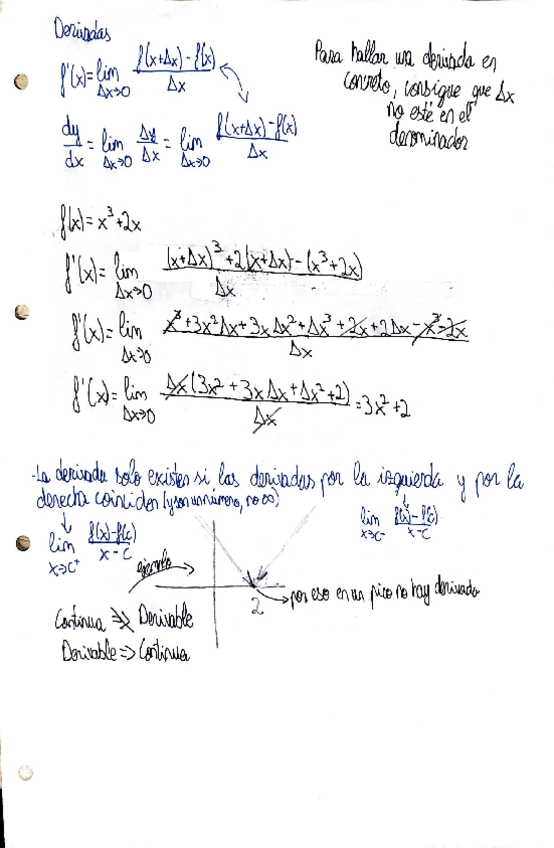 Derivadas
f'(x)=lim Δx→0 (f(x+Δx)-f(x))/Δx
Para hallar una derivada en
concreto, consigue que Δx
no esté en el
denominador
dy/dx = lim Δx→0 Δy/Δx = lim Δx→0 (f(x+Δx)-f(x))/Δx
f(x)=x³+2x
f'(x)=lim Δx→0 ((x+Δx)³+2(x+Δx)-(x³+2x))/Δx
f'(x)=lim Δx→0 (x³+3x²Δx+3xΔx²+Δx³+2x+2Δx-x³-2x)/Δx
f'(x)=lim Δx→0 (Δx(3x²+3xΔx+Δx²+2))/Δx =3x²+2
-La derivada solo existen si las derivadas por la izquierda y por la
derecha coinciden (y son un número, no ∞)
lim x→c⁺ (f(x)-f(c))/(x-c)
lim x→c⁻ (f(x)-f(c))/(x-c)
ejemplo
2
por eso en un pico no hay derivada
Continua ⇏ Derivable
Derivable => Continua